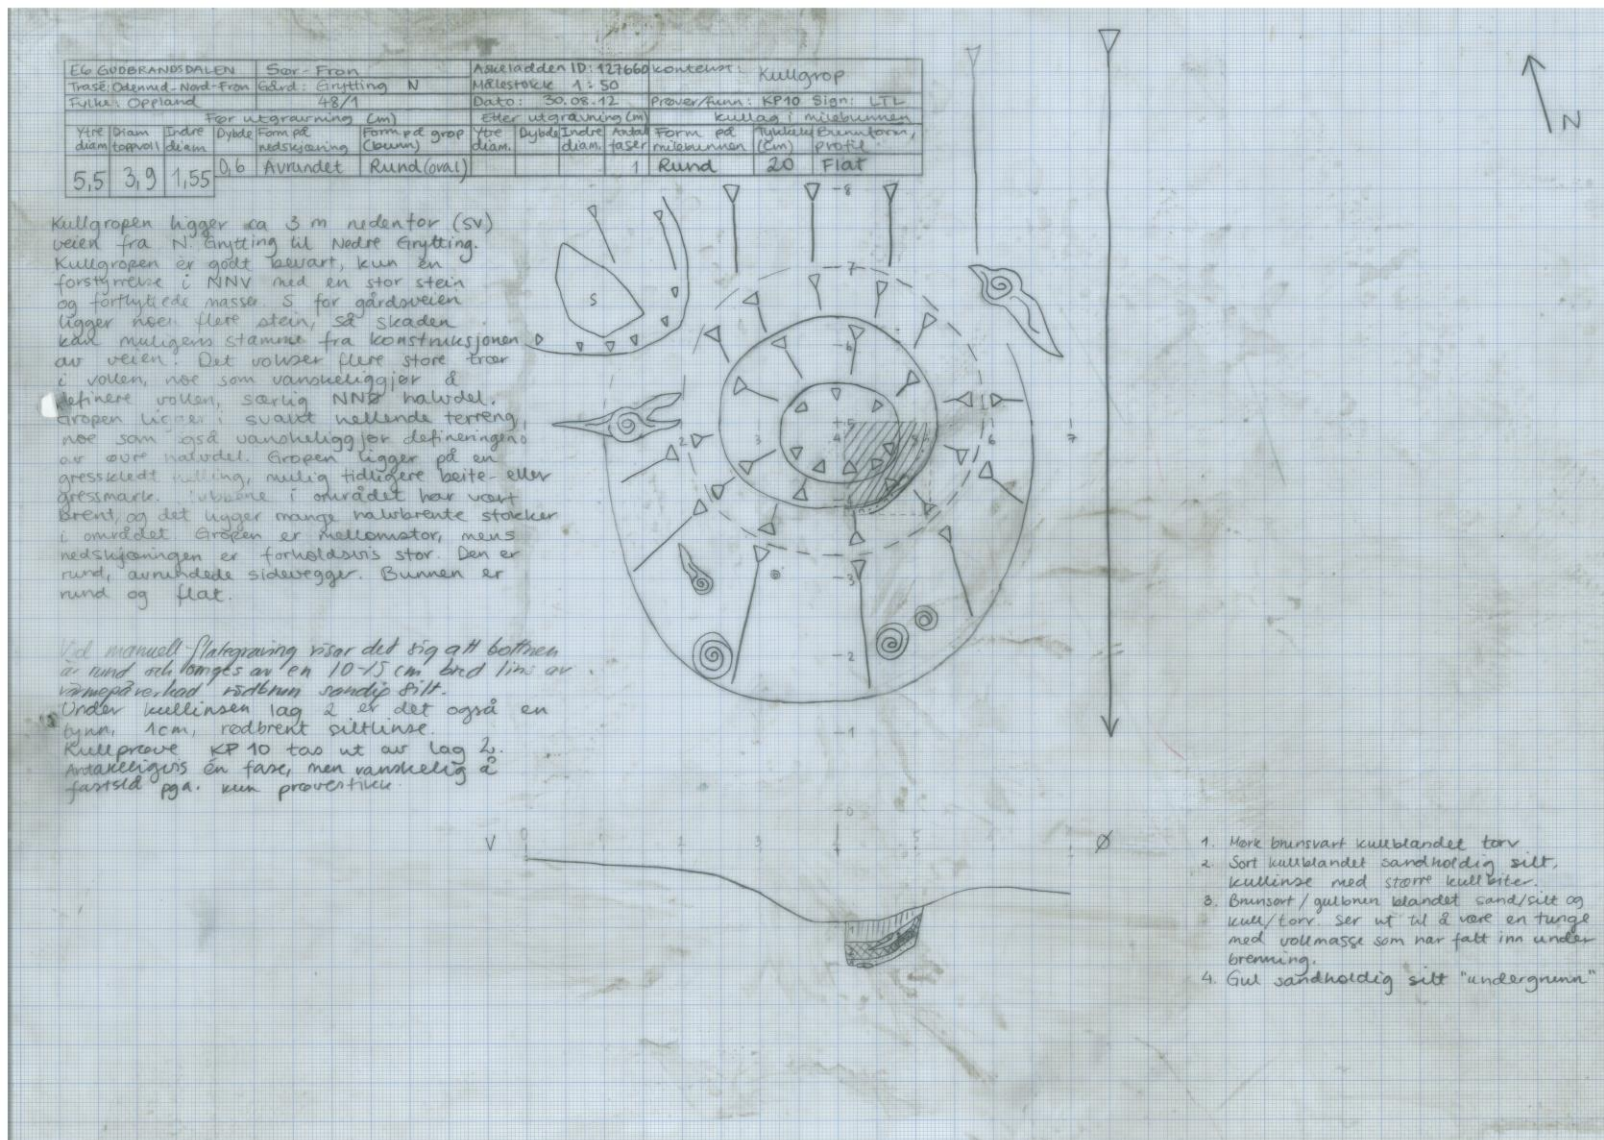 E6 GUDBRANDSDALEN Sør-Fron Askeladden ID: 127660 Kontekst: Kullgrop
Trasé: Odenrud-Nord-Fron Gård: Grytting N Målestokk 1:50
Fylke: Oppland 48/1 Dato: 30.08.12 Prøver/funn: KP10 Sign: LTL
Før utgravning (m) Etter utgravning (m) Kullag i milebunnen
Ytre diam Diam toppvoll Indre diam Dybde Form på nedskjæring Form på grop (bunn) Ytre diam. Dybde Indre diam. Antal faser Form på milebunnen Tykkelse (cm) Bunnform, profil
5,5 3,9 1,55 0,6 Avrundet Rund (oval) 1 Rund 20 Flat
Kullgropen ligger ca 3 m nedenfor (SV)
veien fra N. Grytting til Nedre Grytting.
Kullgropen er godt bevart, kun en
forstyrrelse i NNV med en stor stein
og forflyttede masser. S for gårdsveien
ligger noen flere stein, så skaden
kan muligens stamme fra konstruksjonen
av veien. Det vokser flere store trær
i vollen, noe som vanskeliggjør å
definere vollen, særlig NNØ halvdel.
Gropen ligger i svakt hellende terreng,
noe som også vanskeliggjør defineringen
av øvre halvdel. Gropen ligger på en
gresskledt helling, mulig tidligere beite- eller
gressmark. i området har vært
brent, og det ligger mange halvbrente stokker
i området. Gropen er mellomstor, mens
nedskjæringen er forholdsvis stor. Den er
rund, avrundede sidevegger. Bunnen er
rund og flat.
Vid manuell flategraving visar det sig att bottnen
är rund och omges av en 10-15 cm bred lins av
värmepåverkad rödbrun sandig silt.
Under kullinsen lag 2 er det også en
tynn, 1cm, rødbrent siltlinse.
Kullprøve KP10 tas ut av lag 2.
Antakeligvis én fase, men vanskelig å
fastslå pga. kun prøvestikk.
N
S
8
7
6
5
2 3 4 5 6 7
4
3
2
1
0
V 0 1 2 3 4 5 Ø
1. Mørk brunsvart kullblandet torv
2. Sort kullblandet sandholdig silt,
kullinse med større kullbiter.
3. Brunsort / gulbrun blandet sand/silt og
kull/torv. Ser ut til å være en tunge
med vollmasse som har falt inn under
brenning.
4. Gul sandholdig silt "undergrunn"